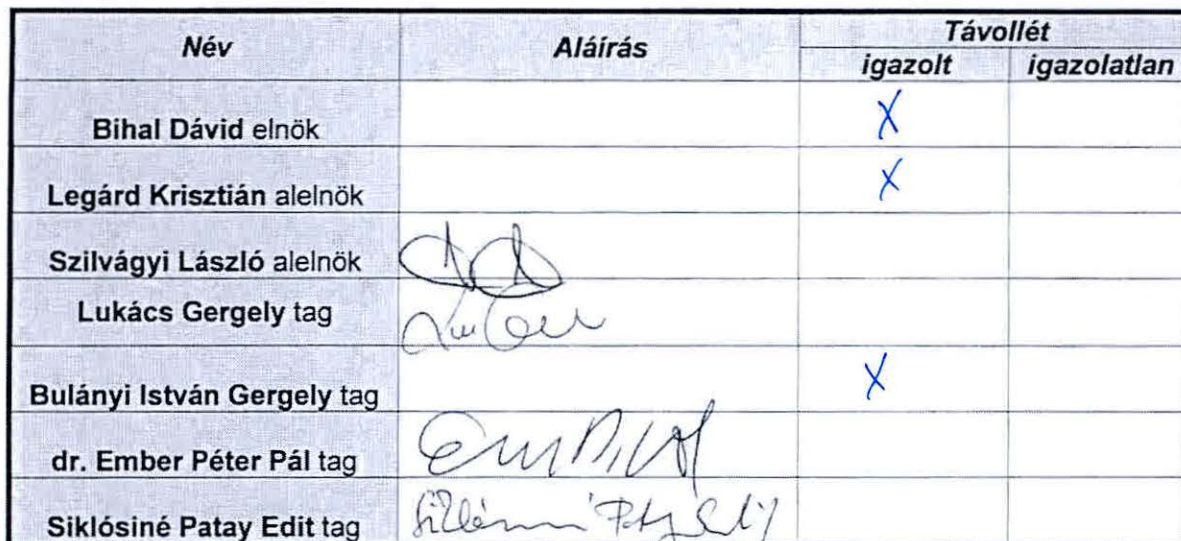 Név Aláírás Távollét
igazolt igazolatlan
Bihal Dávid elnök X
Legárd Krisztián alelnök X
Szilvágyi László alelnök
Lukács Gergely tag
Bulányi István Gergely tag X
dr. Ember Péter Pál tag
Siklósiné Patay Edit tag